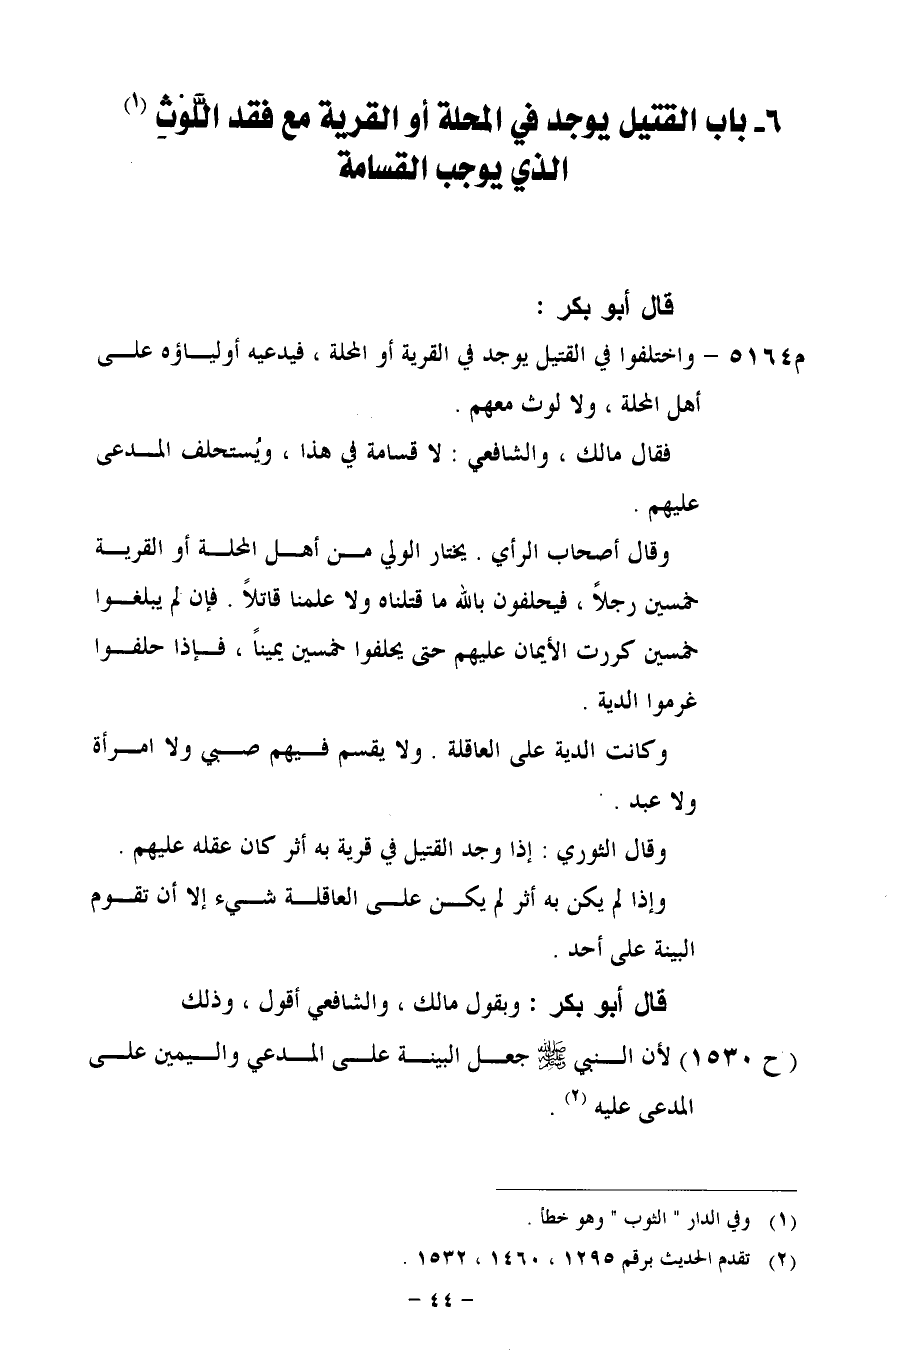 ٦ـ باب القتيل يوجد في المحلة أو القرية مع فقد اللَّوْثِ (١)
الذي يوجب القسامة
قال أبو بكر :
م٥١٦٤ – واختلفوا في القتيل يوجد في القرية أو المحلة ، فيدعيه أوليـاؤه علـى
أهل المحلة ، ولا لوث معهم .
فقال مالك ، والشافعي : لا قسامة في هذا ، ويُستحلف المـدعى
عليهم .
وقال أصحاب الرأي . يختار الولي مـن أهـل المحلـة أو القريـة
خمسين رجلاً ، فيحلفون بالله ما قتلناه ولا علمنا قاتلاً . فإن لم يبلغـوا
خمسين كررت الأيمان عليهم حتى يحلفوا خمسين يميناً ، فـإذا حلفـوا
غرموا الدية .
وكانت الدية على العاقلة . ولا يقسم فـيهم صـبي ولا امـرأة
ولا عبد .
وقال الثوري : إذا وجد القتيل في قرية به أثر كان عقله عليهم .
وإذا لم يكن به أثر لم يكـن علـى العاقلـة شـيء إلا أن تقـوم
البينة على أحد .
قال أبو بكر : وبقول مالك ، والشافعي أقول ، وذلك
(ح ١٥٣٠) لأن الـنبي ﷺ جعـل البينـة علـى المـدعي والـيمين علـى
المدعى عليه (٢) .
(١) وفي الدار " الثوب " وهو خطأ .
(٢) تقدم الحديث برقم ١٢٩٥ ، ١٤٦٠ ، ١٥٣٢ .
– ٤٤ –